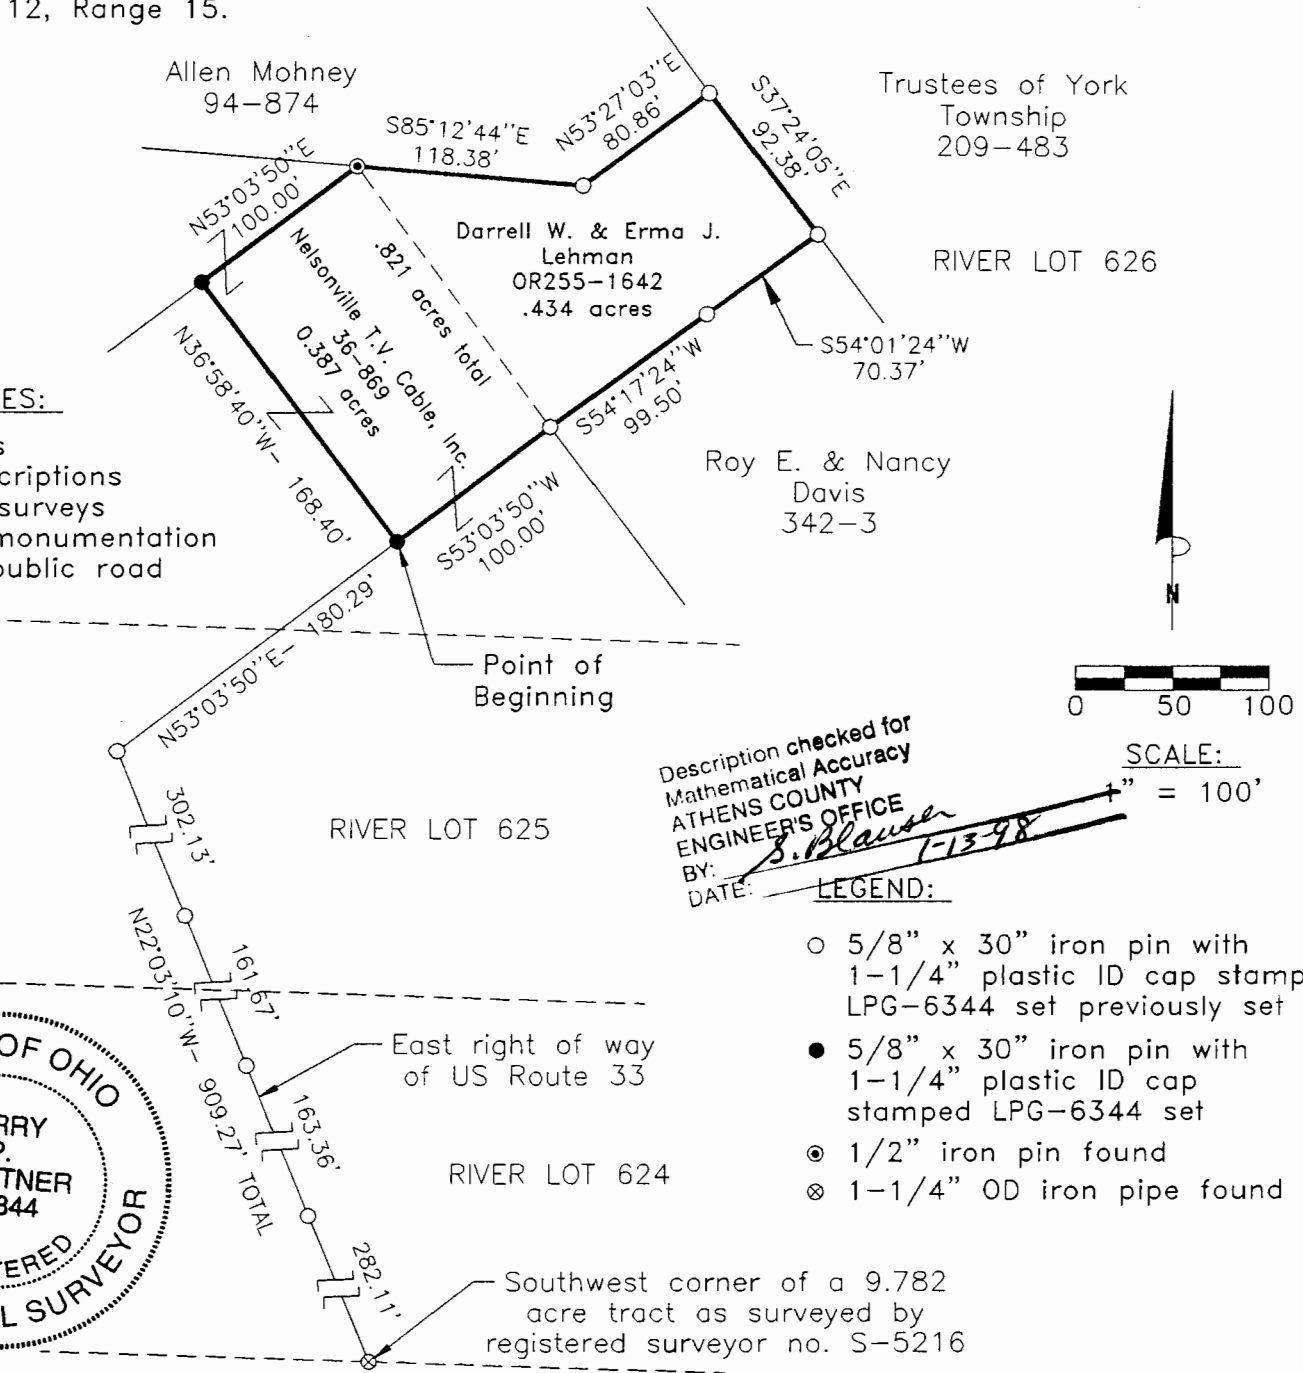 12, Range 15.
Allen Mohney
94-874
Trustees of York
Township
209-483
S85°12'44"E
118.38'
N53°27'03"E
80.86'
S37°24'05"E
92.38'
N53°03'50"E
100.00'
Darrell W. & Erma J.
Lehman
OR255-1642
.434 acres
.821 acres total
Nelsonville T.V. Cable, Inc.
36-869
0.387 acres
RIVER LOT 626
N36°58'40"W- 168.40'
S54°01'24"W
70.37'
S54°17'24"W
99.50'
S53°03'50"W
100.00'
Roy E. & Nancy
Davis
342-3
ES:
s
criptions
surveys
monumentation
public road
N53°03'50"E- 180.29'
Point of
Beginning
N
0 50 100
SCALE:
1" = 100'
Description checked for
Mathematical Accuracy
ATHENS COUNTY
ENGINEER'S OFFICE
BY: S. Blauser
DATE: 1-13-98
RIVER LOT 625
302.13'
161.67'
N22°03'10"W- 909.27' TOTAL
East right of way
of US Route 33
163.36'
RIVER LOT 624
282.11'
Southwest corner of a 9.782
acre tract as surveyed by
registered surveyor no. S-5216
LEGEND:
○ 5/8" x 30" iron pin with
1-1/4" plastic ID cap stamp
LPG-6344 set previously set
● 5/8" x 30" iron pin with
1-1/4" plastic ID cap
stamped LPG-6344 set
◉ 1/2" iron pin found
⊗ 1-1/4" OD iron pipe found
OF OHIO
RRY
P.
TNER
344
TERED
L SURVEYOR